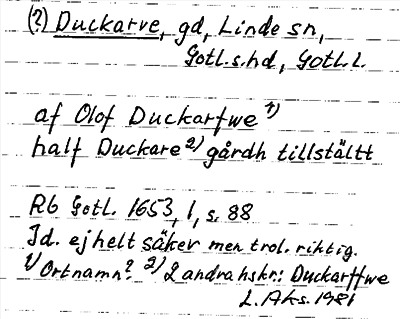 (?) Duckarve, gd, Linde sn,
Gotl.s.hd, Gotl.l.
af Olof Duckarfwe 1)
half Duckare 2) gårdh tillstältt
Rb Gotl. 1653, 1, s. 88
Id. ej helt säker men trol. riktig.
1) Ortnamn? 2) I andrahskr: Duckarffwe
L. Aks. 1981